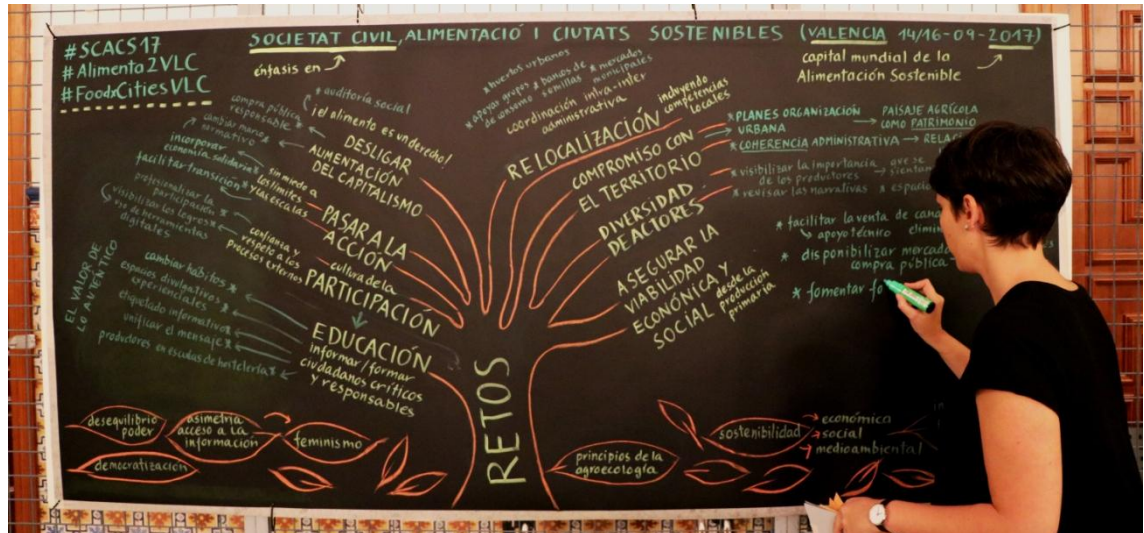 #SCACS17
#Alimenta2VLC
#FoodxCitiesVLC
SOCIETAT CIVIL, ALIMENTACIÓ I CIUTATS SOSTENIBLES (VALENCIA 14/16-09-2017)
énfasis en
capital mundial de la
Alimentación Sostenible
* auditoría social
compra pública
responsable
cambiar marco
normativo
¡el alimento es un derecho!
DESLIGAR
ALIMENTACIÓN
DEL CAPITALISMO
incorporar
economía solidaria
facilitar transición
sin miedo a
los límites
y las escalas
PASAR A LA
ACCIÓN
profesionalizar la
participación
visibilizar los logros
uso de herramientas
digitales
confianza y
respeto a los
procesos externos
cultura de la
PARTICIPACIÓN
EL VALOR DE
LO AUTÉNTICO
cambiar hábitos *
espacios divulgativos y
experienciales *
etiquetado informativo *
unificar el mensaje *
productores en escuelas de hostelería *
EDUCACIÓN
informar/formar
ciudadanos críticos
y responsables
* huertos urbanos
* apoyar grupos
de consumo
* bancos de
semillas
* mercados
municipales
coordinación infra-inter
administrativa
RELOCALIZACIÓN
incluyendo
competencias
locales
COMPROMISO CON
EL TERRITORIO
* PLANES ORGANIZACIÓN
URBANA
PAISAJE AGRÍCOLA
COMO PATRIMONIO
* COHERENCIA ADMINISTRATIVA
DIVERSIDAD
DE ACTORES
* visibilizar la importancia
de los productores
que se
* revisar las narrativas
ASEGURAR LA
VIABILIDAD
ECONÓMICA Y
SOCIAL
desde la
producción
primaria
* facilitar la venta de
apoyo técnico
* disponibilizar
compra pública
* fomentar
RETOS
desequilibrio
poder
asimetría
acceso a la
información
feminismo
democratización
principios de la
agroecología
sostenibilidad
económica
social
medioambiental